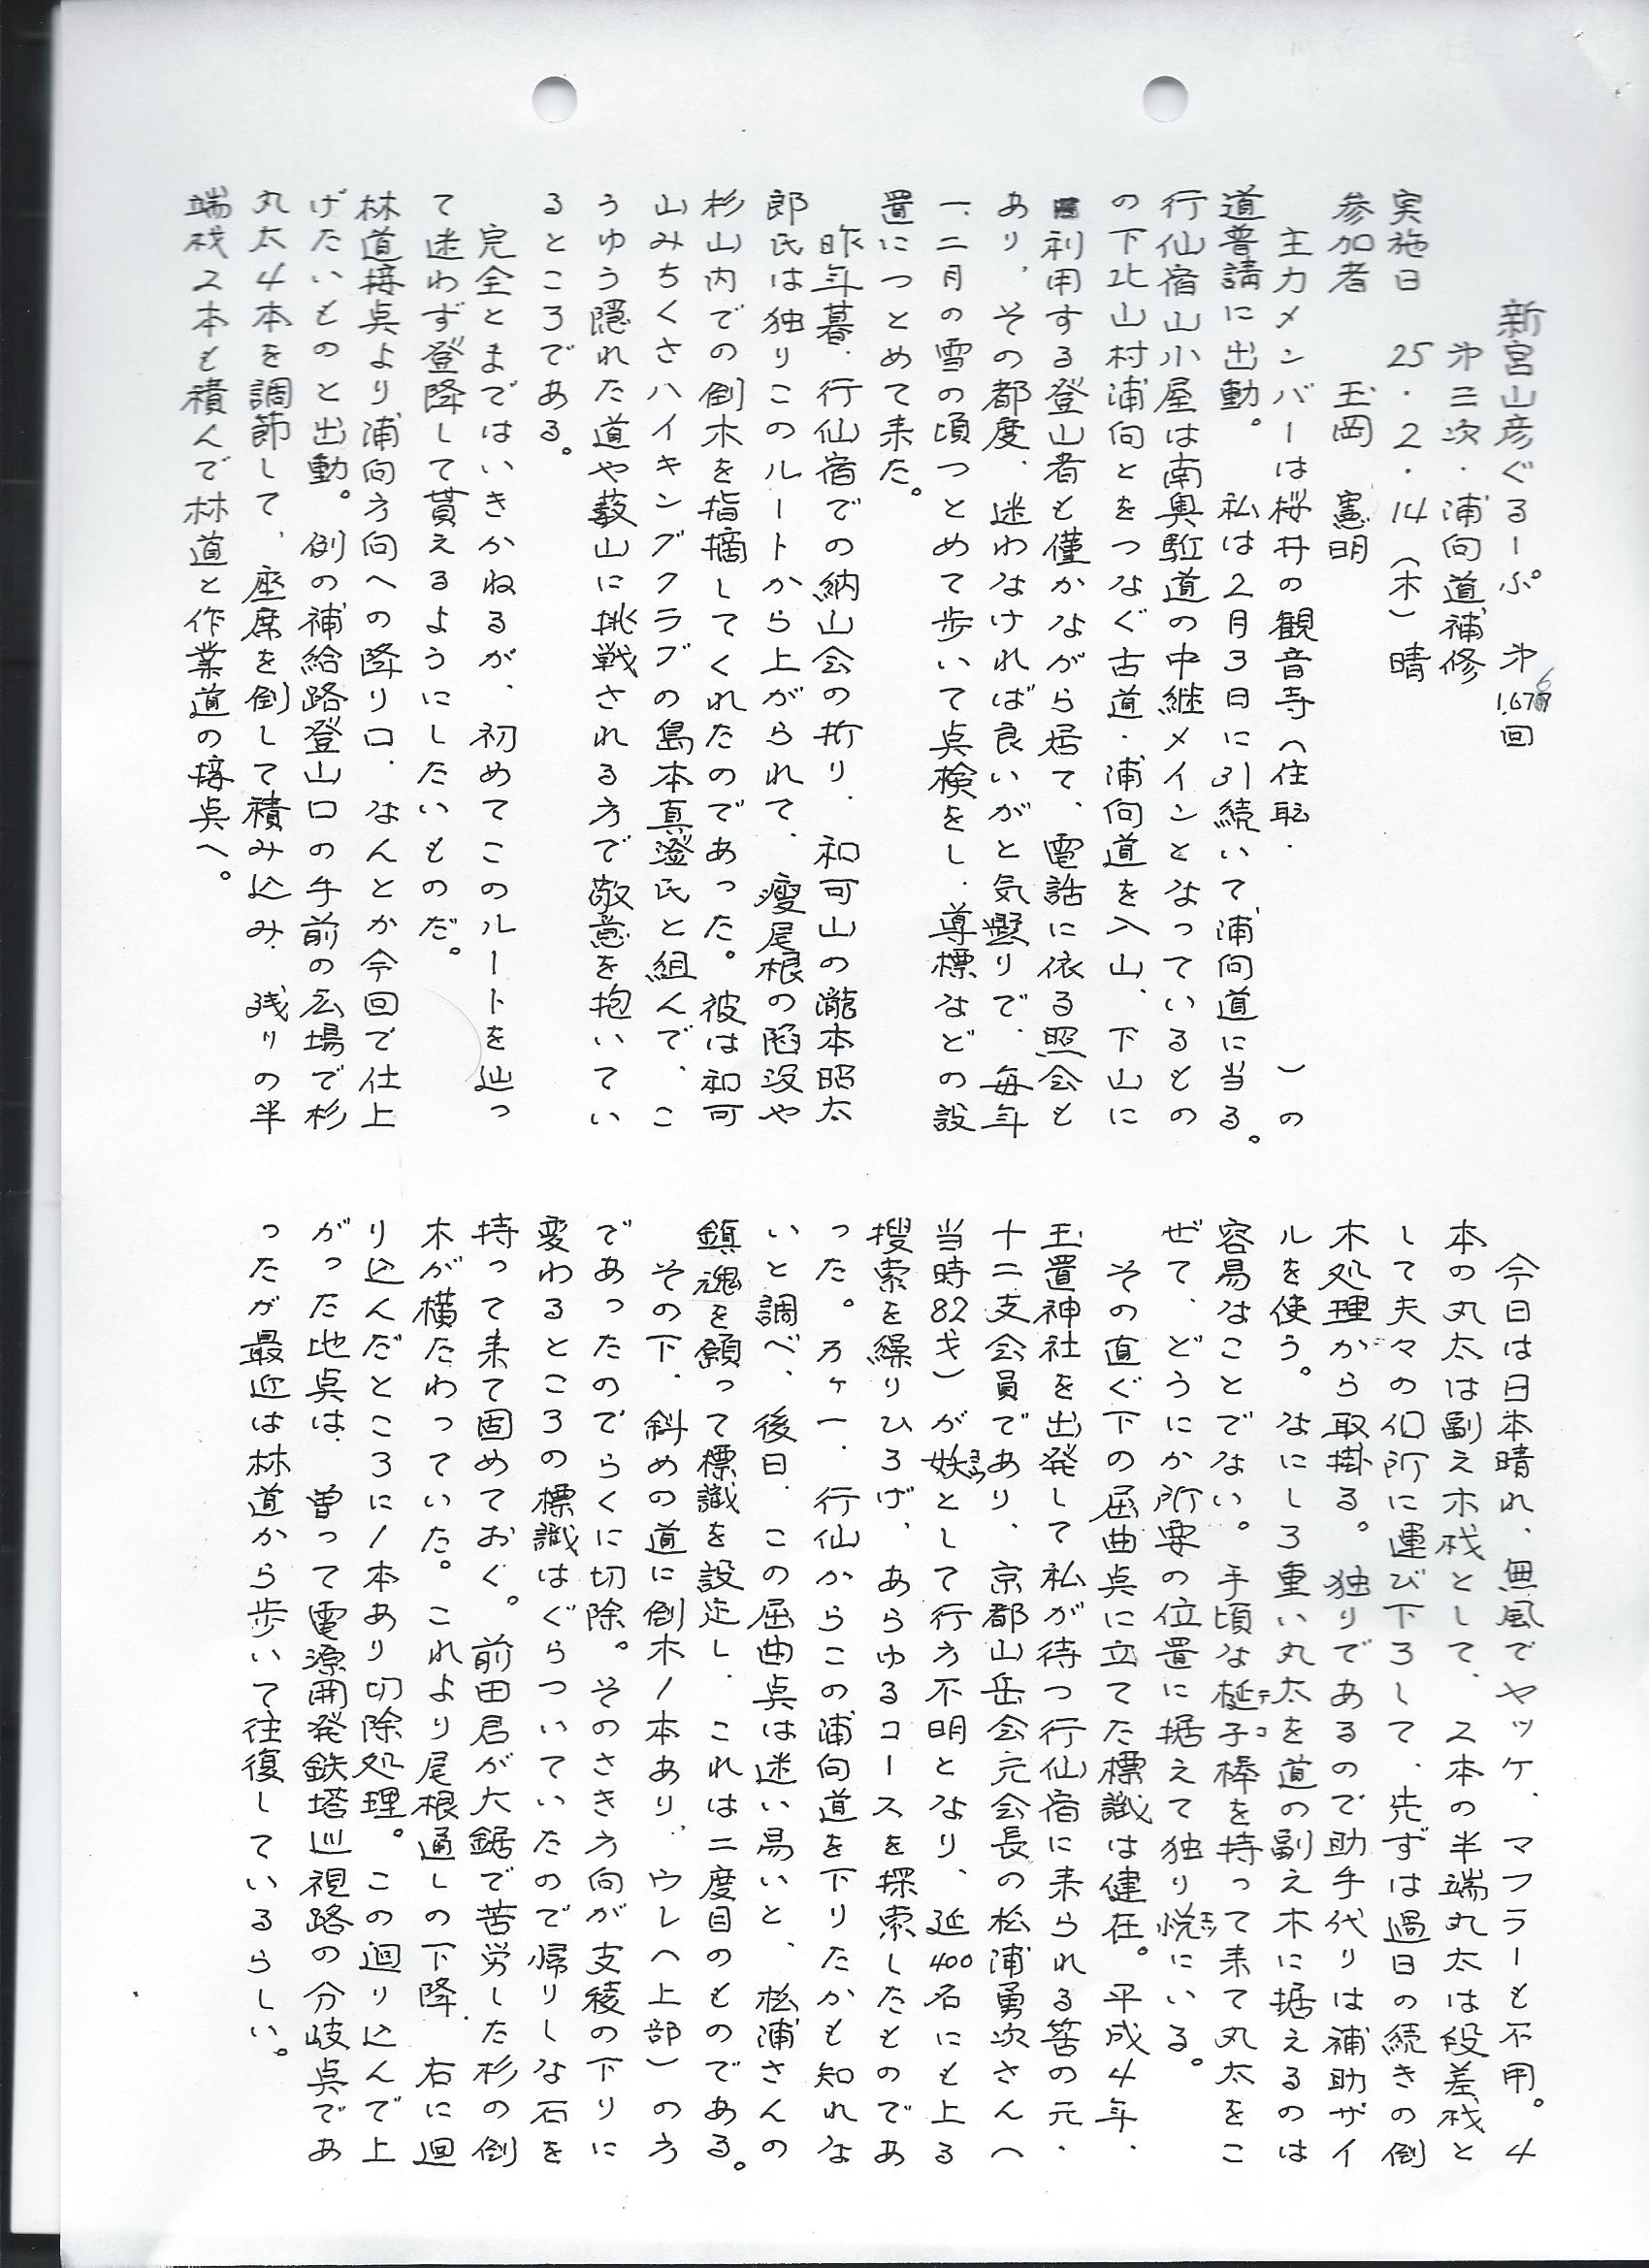 新宮山彦ぐるーぷ 㐧1,676回
㐧三次.浦向道補修
実施日 25.2.14(木)晴
参加者 玉岡 憲明
主力メンバーは桜井の観音寺(住恥. )の
道普請に出動。 私は2月3日に引続いて浦向道に当る。
行仙宿山小屋は南奥駈道の中継メインとなっているもの
の下北山村浦向とをつなぐ古道.浦向道を入山、下山に
利用する登山者も僅かながら居て、電話に依る照会も
あり、その都度、迷わなければ良いがと気懸りで、毎年
一、二月の雪の頃つとめて歩いて点検をし.導標などの設
置につとめて来た。
昨年暮.行仙宿での納山会の折り.和可山の瀧本昭太
郎氏は独りこのルートから上がられて、瘦尾根の陥没や
杉山内での倒木を指摘してくれたのであった。彼は和可
山みちくさハイキングクラブの島本真澄氏と組んで、こ
うゆう隠れた道や薮山に挑戦される方で敬意を抱いてい
るところである。
完全とまではいきかねるが、初めてこのルートを辿っ
て迷わず登降して貰えるようにしたいものだ。
林道接点より浦向方向への降り口、なんとか今回で仕上
げたいものと出動。例の補給路登山口の手前の広場で杉
丸太4本を調節して、座席を倒して積み込み.残りの半
端材2本も積んで林道と作業道の接点へ。
今日は日本晴れ、無風でヤッケ、マフラーも不用。4
本の丸太は副え木材として、2本の半端丸太は段差材と
して夫々の個所に運び下ろして、先ずは過日の続きの倒
木処理から取掛る。独りであるので助手代りは補助ザイ
ルを使う。なにしろ重い丸太を道の副え木に据えるのは
容易なことでない。手頃な梃子棒を持って来て丸太をこ
ぜて、どうにか所要の位置に据えて独り悦にいる。
その直ぐ下の屈曲点に立てた標識は健在。平成4年、
玉置神社を出発して私が待つ行仙宿に来られる筈の元、
十二支会員であり、京都山岳会元会長の松浦勇次さん(
当時82才)が妖として行方不明となり、延400名にも上る
捜索を繰りひろげ、あらゆるコースを探索したものであ
った。万ヶ一.行仙からこの浦向道を下りたかも知れな
いと調べ、後日.この屈曲点は迷い易いと、松浦さんの
鎮魂を願って標識を設定し.これは二度目のものである。
その下.斜めの道に倒木1本あり、ウレ(上部)の方
であったのでらくに切除。そのさき方向が支稜の下りに
変わるところの標識はぐらついていたので帰りしな石を
持って来て固めておく。前田君が大鋸で苦労した杉の倒
木が横たわっていた。これより尾根通しの下降.右に廻
り込んだところに1本あり切除処理。この廻り込んで上
がった地点は、曽って電源開発鉄塔巡視路の分岐点であ
ったが最近は林道から歩いて往復しているらしい。